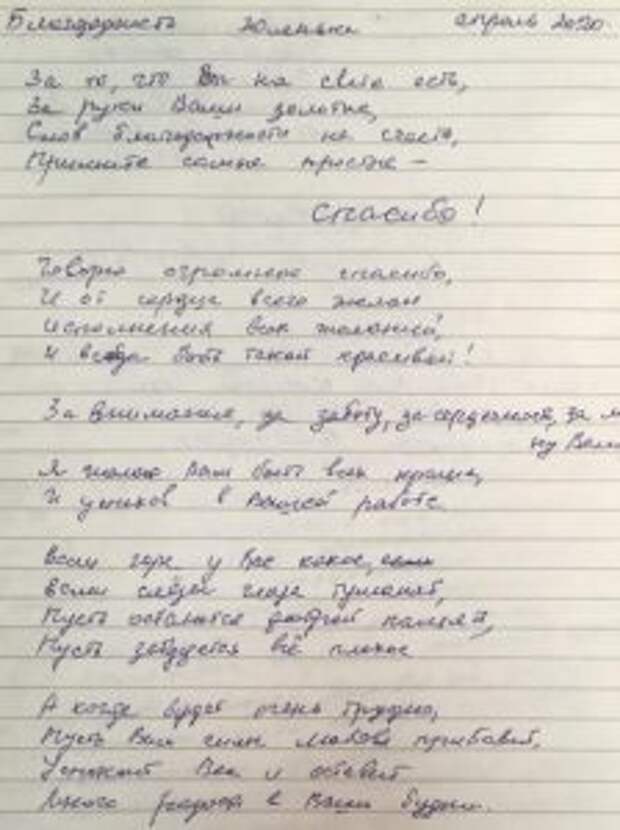 Благодарность Юленьки апрель 2020
За то, что Вы на свете есть,
За руки Ваши золотые,
Слов благодарности не счесть,
Примите самые простые —
Спасибо!
Говорю огромное спасибо,
И от сердца всего желаю
Исполнения всех желаний,
И всегда быть такой красивой!
За внимание, за заботу, за сердечность, за
ну Вам
Я желаю Вам быть всех краше,
И успехов в Вашей работе
Если горе у Вас какое,
Если слезы глаза туманят,
Пусть останется доброй память,
Пусть забудется всё плохое
А когда будет очень трудно,
Пусть Вам силы любовь прибавит,
Успокоит Вас и оставит
Много радости в Ваши будни.